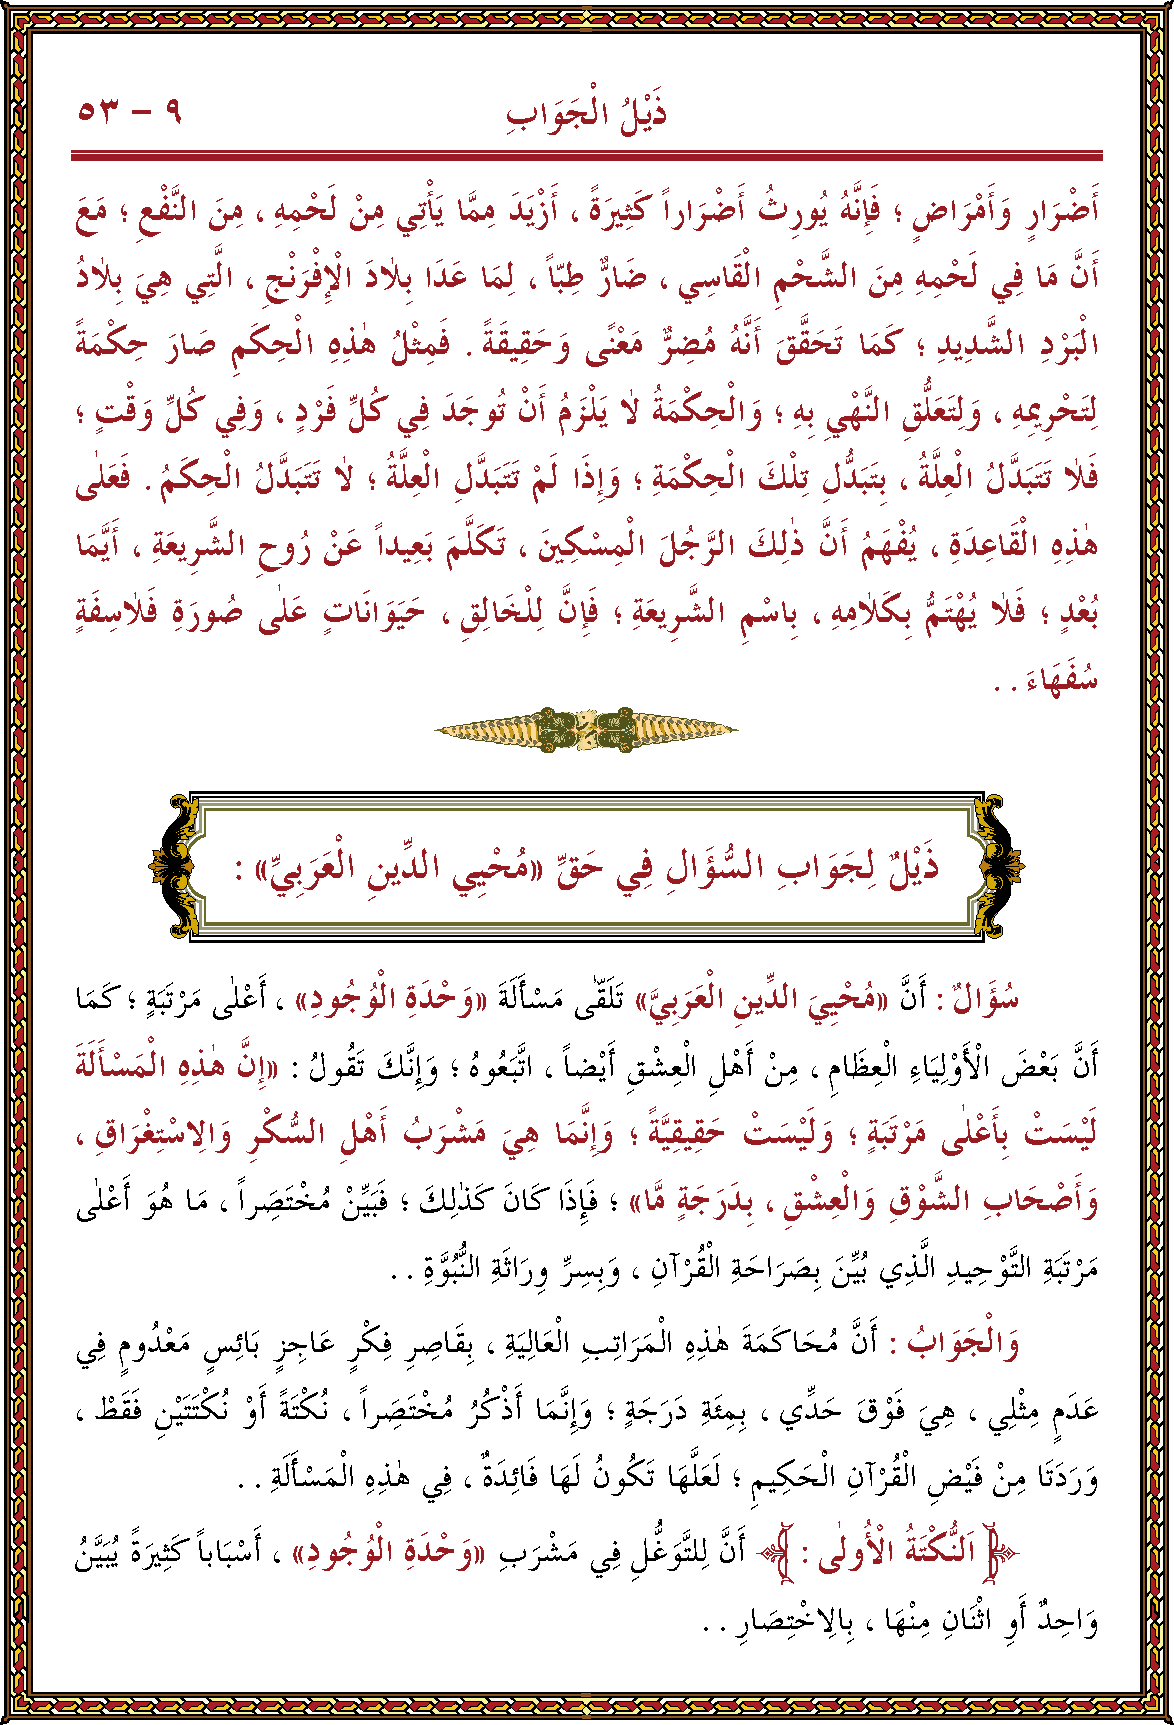 ذَيْلُ الْجَوَابِ
٩ – ٥٣
أَضْرَارٍ وَأَمْرَاضٍ ؛ فَإِنَّهُ يُورِثُ أَضْرَاراً كَثِيرَةً ، أَزْيَدَ مِمَّا يَأْتِي مِنْ لَحْمِهِ ، مِنَ النَّفْعِ ؛ مَعَ
أَنَّ مَا فِي لَحْمِهِ مِنَ الشَّحْمِ الْقَاسِي ، ضَارٌّ طِبّاً ، لِمَا عَدَا بِلَادَ الْإِفْرَنْجِ ، الَّتِي هِيَ بِلَادُ
الْبَرْدِ الشَّدِيدِ ؛ كَمَا تَحَقَّقَ أَنَّهُ مُضِرٌّ مَعْنًى وَحَقِيقَةً . فَمِثْلُ هٰذِهِ الْحِكَمِ صَارَ حِكْمَةً
لِتَحْرِيمِهِ ، وَلِتَعَلُّقِ النَّهْيِ بِهِ ؛ وَالْحِكْمَةُ لَا يَلْزَمُ أَنْ تُوجَدَ فِي كُلِّ فَرْدٍ ، وَفِي كُلِّ وَقْتٍ ؛
فَلَا تَتَبَدَّلُ الْعِلَّةُ ، بِتَبَدُّلِ تِلْكَ الْحِكْمَةِ ؛ وَإِذَا لَمْ تَتَبَدَّلِ الْعِلَّةُ ؛ لَا تَتَبَدَّلُ الْحِكَمُ . فَعَلٰى
هٰذِهِ الْقَاعِدَةِ ، يُفْهَمُ أَنَّ ذٰلِكَ الرَّجُلَ الْمِسْكِينَ ، تَكَلَّمَ بَعِيداً عَنْ رُوحِ الشَّرِيعَةِ ، أَيَّمَا
بُعْدٍ ؛ فَلَا يُهْتَمُّ بِكَلَامِهِ ، بِاسْمِ الشَّرِيعَةِ ؛ فَإِنَّ لِلْخَالِقِ ، حَيَوَانَاتٍ عَلٰى صُورَةِ فَلَاسِفَةٍ
سُفَهَاءَ . .
ذَيْلٌ لِجَوَابِ السُّؤَالِ فِي حَقِّ «مُحْيِي الدِّينِ الْعَرَبِيِّ» :
سُؤَالٌ : أَنَّ «مُحْيِيَ الدِّينِ الْعَرَبِيَّ» تَلَقّٰى مَسْأَلَةَ «وَحْدَةِ الْوُجُودِ» ، أَعْلٰى مَرْتَبَةٍ ؛ كَمَا
أَنَّ بَعْضَ الْأَوْلِيَاءِ الْعِظَامِ ، مِنْ أَهْلِ الْعِشْقِ أَيْضاً ، اتَّبَعُوهُ ؛ وَإِنَّكَ تَقُولُ : «إِنَّ هٰذِهِ الْمَسْأَلَةَ
لَيْسَتْ بِأَعْلٰى مَرْتَبَةٍ ؛ وَلَيْسَتْ حَقِيقِيَّةً ؛ وَإِنَّمَا هِيَ مَشْرَبُ أَهْلِ السُّكْرِ وَالِاسْتِغْرَاقِ ،
وَأَصْحَابِ الشَّوْقِ وَالْعِشْقِ ، بِدَرَجَةٍ مَّا» ؛ فَإِذَا كَانَ كَذٰلِكَ ؛ فَبَيِّنْ مُخْتَصَراً ، مَا هُوَ أَعْلٰى
مَرْتَبَةِ التَّوْحِيدِ الَّذِي بُيِّنَ بِصَرَاحَةِ الْقُرْآنِ ، وَبِسِرِّ وِرَاثَةِ النُّبُوَّةِ . .
وَالْجَوَابُ : أَنَّ مُحَاكَمَةَ هٰذِهِ الْمَرَاتِبِ الْعَالِيَةِ ، بِقَاصِرِ فِكْرٍ عَاجِزٍ بَائِسٍ مَعْدُومٍ فِي
عَدَمٍ مِثْلِي ، هِيَ فَوْقَ حَدِّي ، بِمِئَةِ دَرَجَةٍ ؛ وَإِنَّمَا أَذْكُرُ مُخْتَصَراً ، نُكْتَةً أَوْ نُكْتَتَيْنِ فَقَطْ ،
وَرَدَتَا مِنْ فَيْضِ الْقُرْآنِ الْحَكِيمِ ؛ لَعَلَّهَا تَكُونُ لَهَا فَائِدَةٌ ، فِي هٰذِهِ الْمَسْأَلَةِ . .
﴿ اَلنُّكْتَةُ الْأُولٰى : ﴾ أَنَّ لِلتَّوَغُّلِ فِي مَشْرَبِ «وَحْدَةِ الْوُجُودِ» ، أَسْبَاباً كَثِيرَةً يُبَيَّنُ
وَاحِدٌ أَوِ اثْنَانِ مِنْهَا ، بِالِاخْتِصَارِ . .